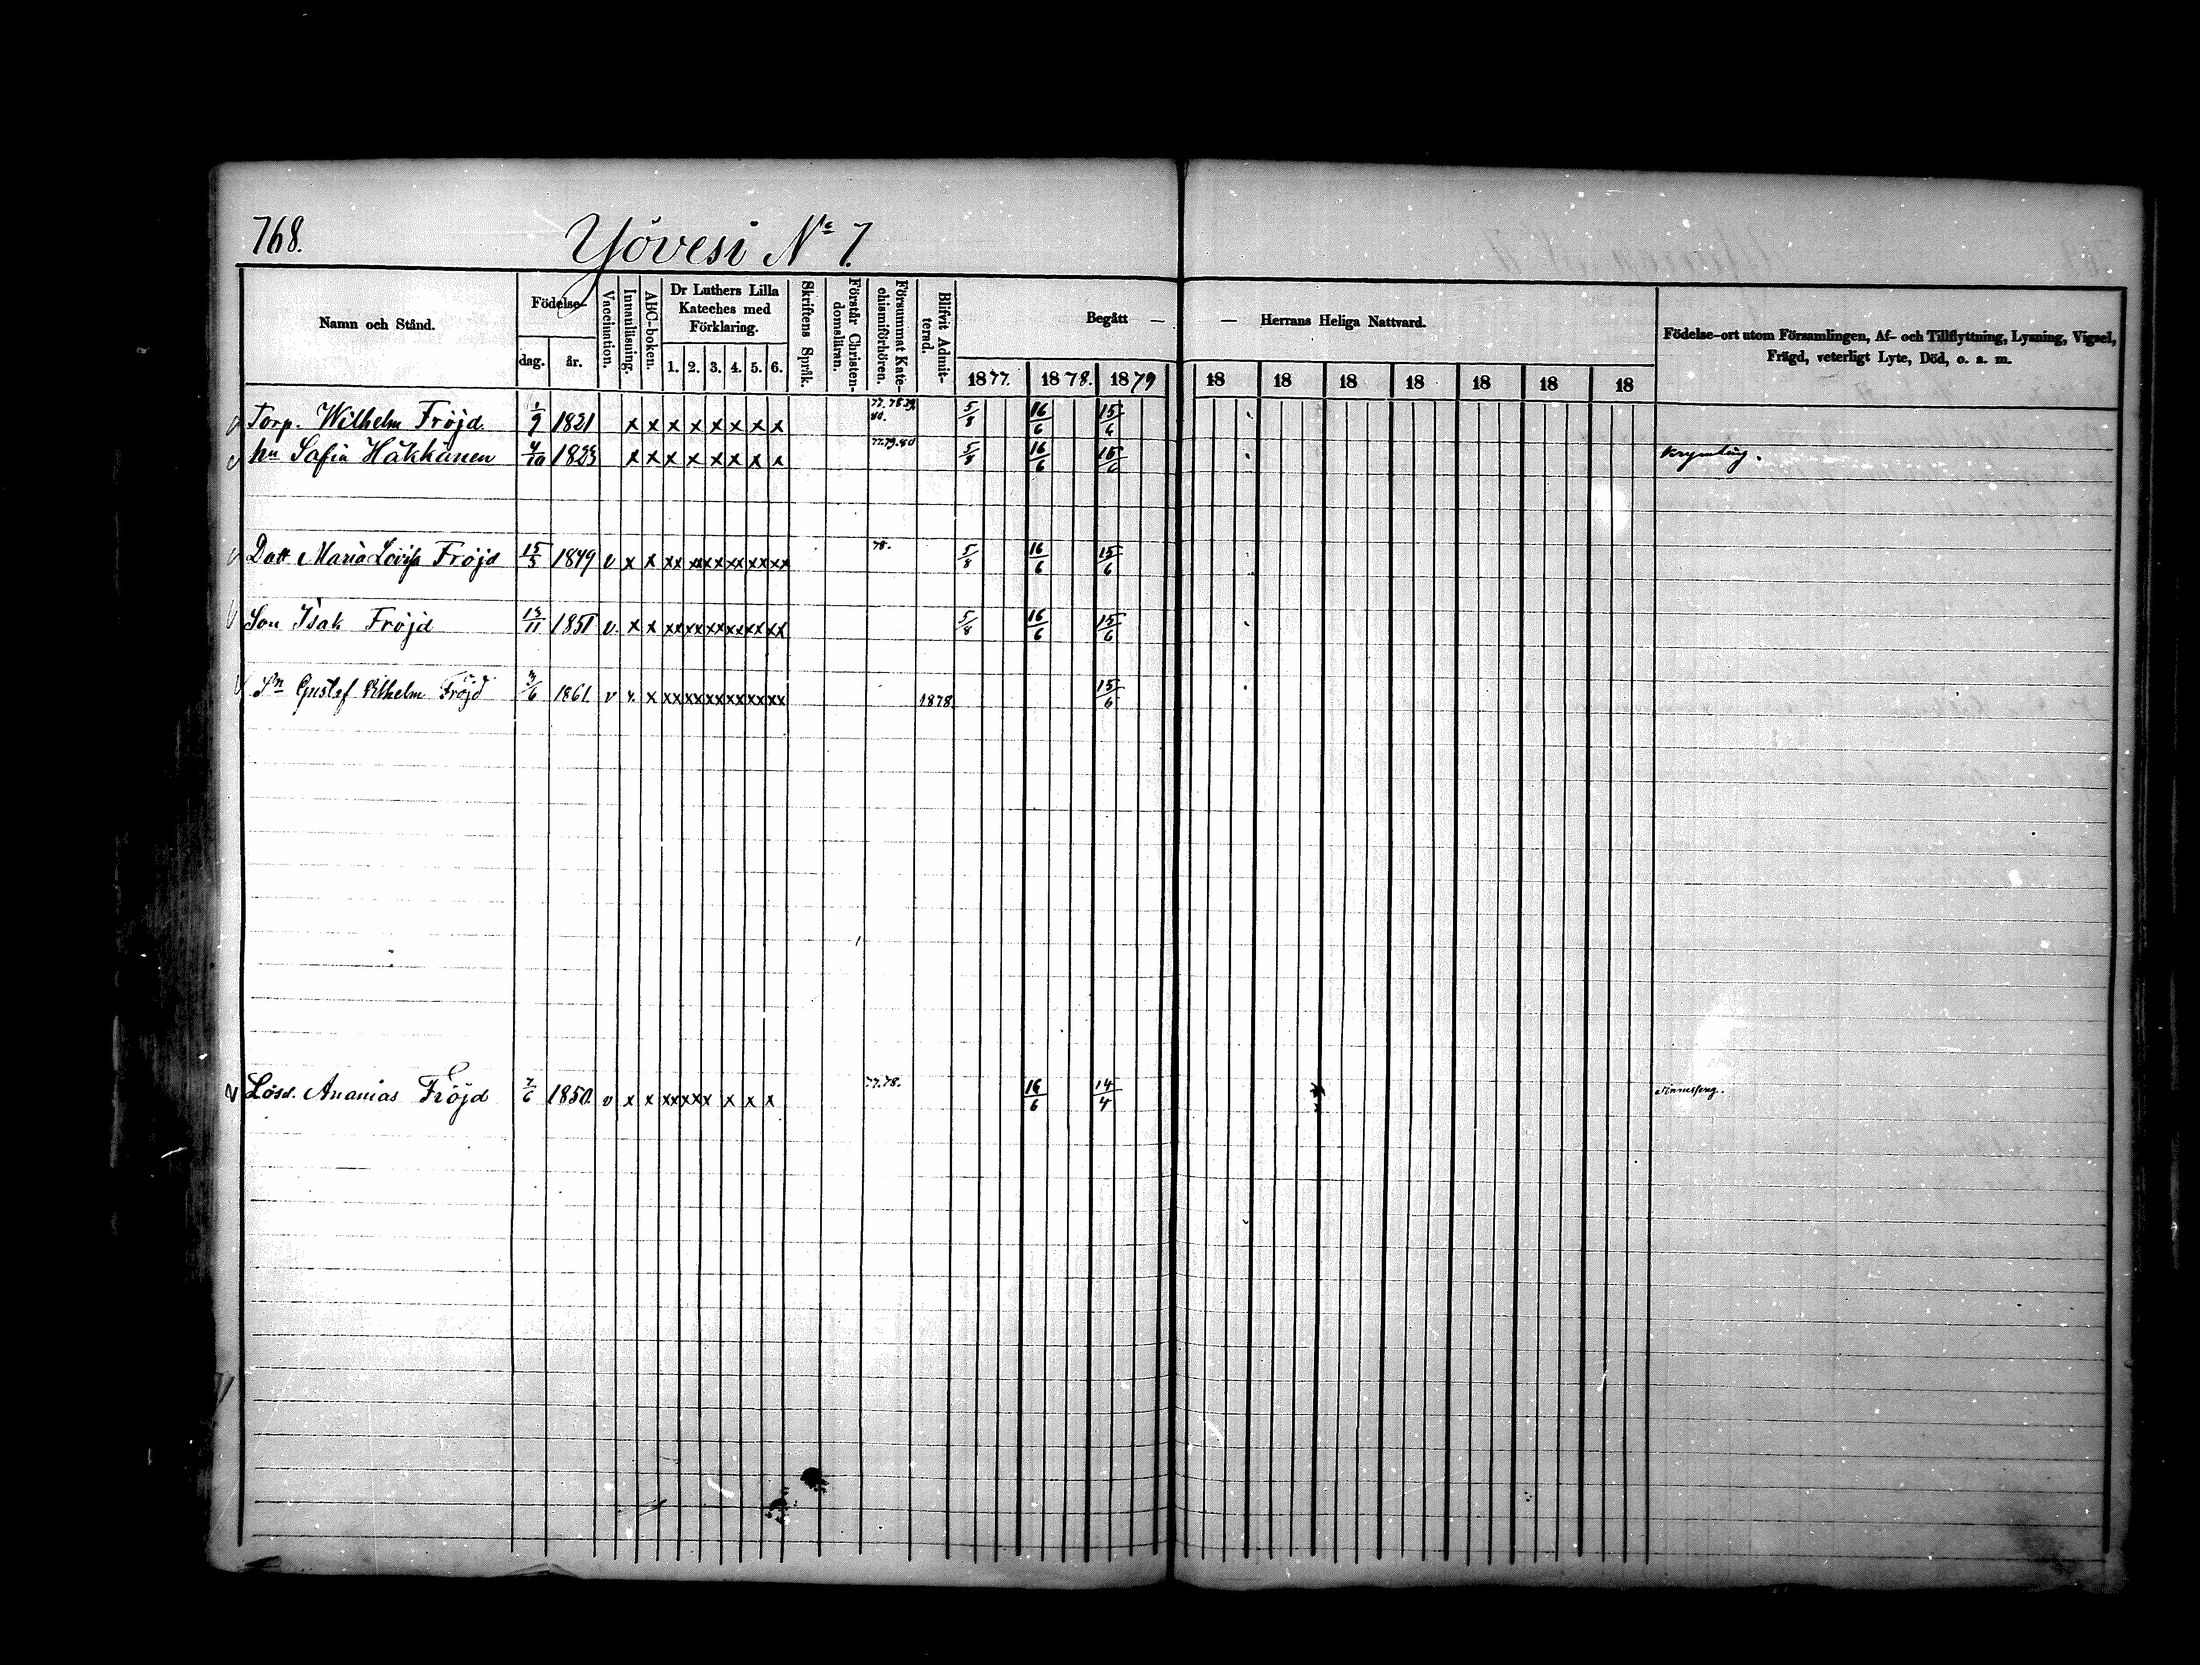 768.
Yövesi Nº 7.
Namn och Stånd.
Födelse-
dag.
år.
Vaccination.
Innanläsning.
ABC-boken.
Dr Luthers Lilla
Kateches med
Förklaring.
1. 2. 3. 4. 5. 6.
Skriftens Språk.
Förstår Christen-
domsläran.
Försummat Kate-
chismiförhören.
Blifvit Admit-
terad.
Begått — — Herrans Heliga Nattvard.
1877. 1878. 1879 18 18 18 18 18 18 18
Födelse-ort utom Församlingen, Af- och Tillflyttning, Lysning, Vigsel,
Frägd, veterligt Lyte, Död, o. s. m.
Torp. Wilhelm Fröjd. 1/9 1821 x x x x x x x x 77. 78. 79. 80. 5/8 16/6 15/6
hu Sofia Häkkänen 4/10 1823 x x x x x x x x 77.79.80 5/8 16/6 15/6 Krymling.
Dott Maria Lovisa Fröjd 15/5 1849 v x x xx xx xx xx xx xx 78. 5/8 16/6 15/6
Son Isak Fröjd 13/11 1851 v. x x xx xx xx xx xx xx 5/8 16/6 15/6
Sn Gustaf Vilhelm Fröjd 3/6 1861. v x x xx xx xx xx xx xx 1878. 15/6
Lösd. Ananias Fröjd 7/6 1850. v x x xx xx x x x x 77.78. 16/6 14/4